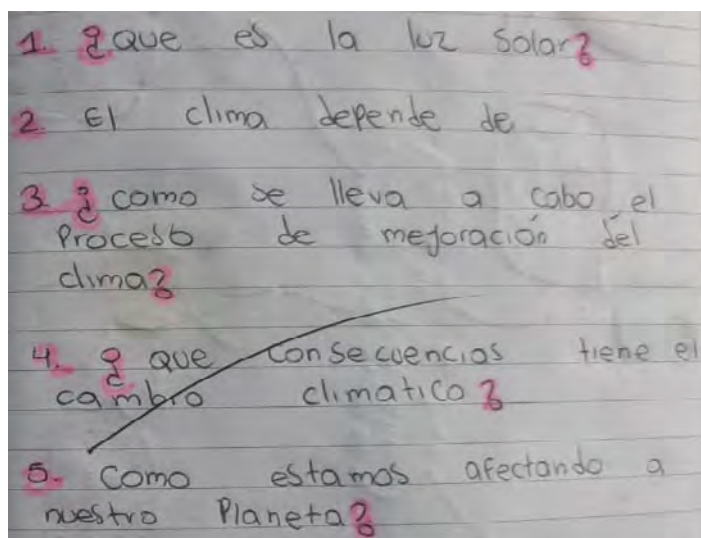 1. ¿Que es la luz solar?
2 El clima depende de
3. ¿como se lleva a cabo el
Proceso de mejoración del
clima?
4. ¿ que consecuencias tiene el
cambio climatico?
5. Como estamos afectando a
nuestro Planeta?